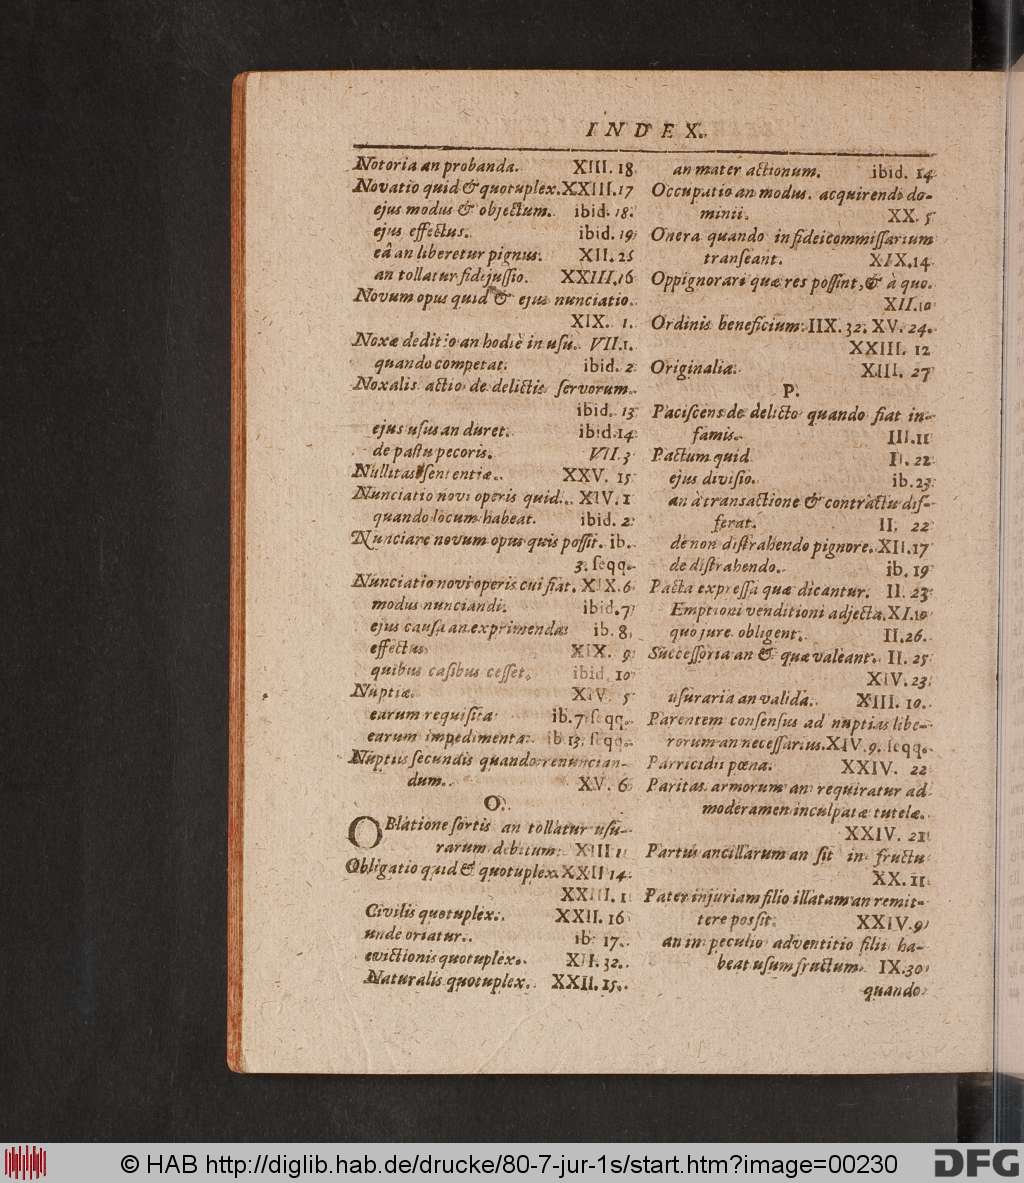 INDEX.
Notoria an probanda. XIII. 18
Novatio quid & quotuplex. XXIII. 17
ejus modus & objectum. ibid. 18.
ejus effectus. ibid. 19
eâ an liberetur pignus. XII. 25
an tollatur fidejussio. XXIII. 16
Novum opus quid & ejus nunciatio.
XIX. 1.
Noxæ deditio an hodiè in usu. VII. 1.
quando competat. ibid. 2
Noxalis actio de delictis servorum.
ibid. 13
ejus usus an duret. ibid. 14
de pastu pecoris. VII. 3
Nullitas sententiæ. XXV. 15
Nunciatio novi operis quid. XIV. 1
quando locum habeat. ibid. 2
Nunciare novum opus quis possit. ib.
3. seqq.
Nunciatio novi operis cui fiat. XIX. 6
modus nunciandi. ibid. 7
ejus causa an exprimenda: ib. 8
effectus XIX. 9
quibus casibus cesset. ibid. 10
Nuptiæ. XIV. 5
earum requisita ib. 7. seqq.
earum impedimenta: ib. 13. seqq.
Nuptiis secundis quando renuncian-
dum. XV. 6
O.
OBlatione sortis an tollatur usu-
rarum debitum: XIII 1
Obligatio quid & quotuplex XXII 14.
XXIII. 1
Civilis quotuplex. XXII. 16
unde oriatur. ib. 17.
evictionis quotuplex. XII. 32.
Naturalis quotuplex. XXII. 15.
an mater actionum. ibid. 14
Occupatio an modus acquirendi do-
minii. XX. 5
Onera quando in fideicommissarium
transeant. XIX. 14
Oppignorari quæ res possint, & à quo.
XII. 10
Ordinis beneficium: IIX. 32. XV. 24.
XXIII. 12
Originalia. XIII. 27
P.
Paciscens de delicto quando fiat in-
famis. III. 11
Pactum quid II. 22
ejus divisio. ib. 23
an à transactione & contractu dif-
ferat. II. 22
de non distrahendo pignore. XII. 17
de distrahendo. ib. 19
Pacta expressa quæ dicantur. II. 23
Emptioni venditioni adjecta. XI. 10
quo jure obligent. II. 26.
Successoria an & quæ valeant. II. 25
XIV. 23
usuraria an valida. XIII. 10.
Parentem consensus ad nuptias libe-
rorum an necessarius. XIV 9. seqq.
Parricidii pœna. XXIV. 22
Paritas armorum an requiratur ad
moderamen inculpatæ tutelæ.
XXIV. 21
Partus ancillarum an sit in fructu
XX. 11
Pater injuriam filio illatam an remit-
tere possit. XXIV. 9
an in peculio adventitio filii ha-
beat usum fructum. IX. 30
quando
© HAB http://diglib.hab.de/drucke/80-7-jur-1s/start.htm?image=00230
DFG